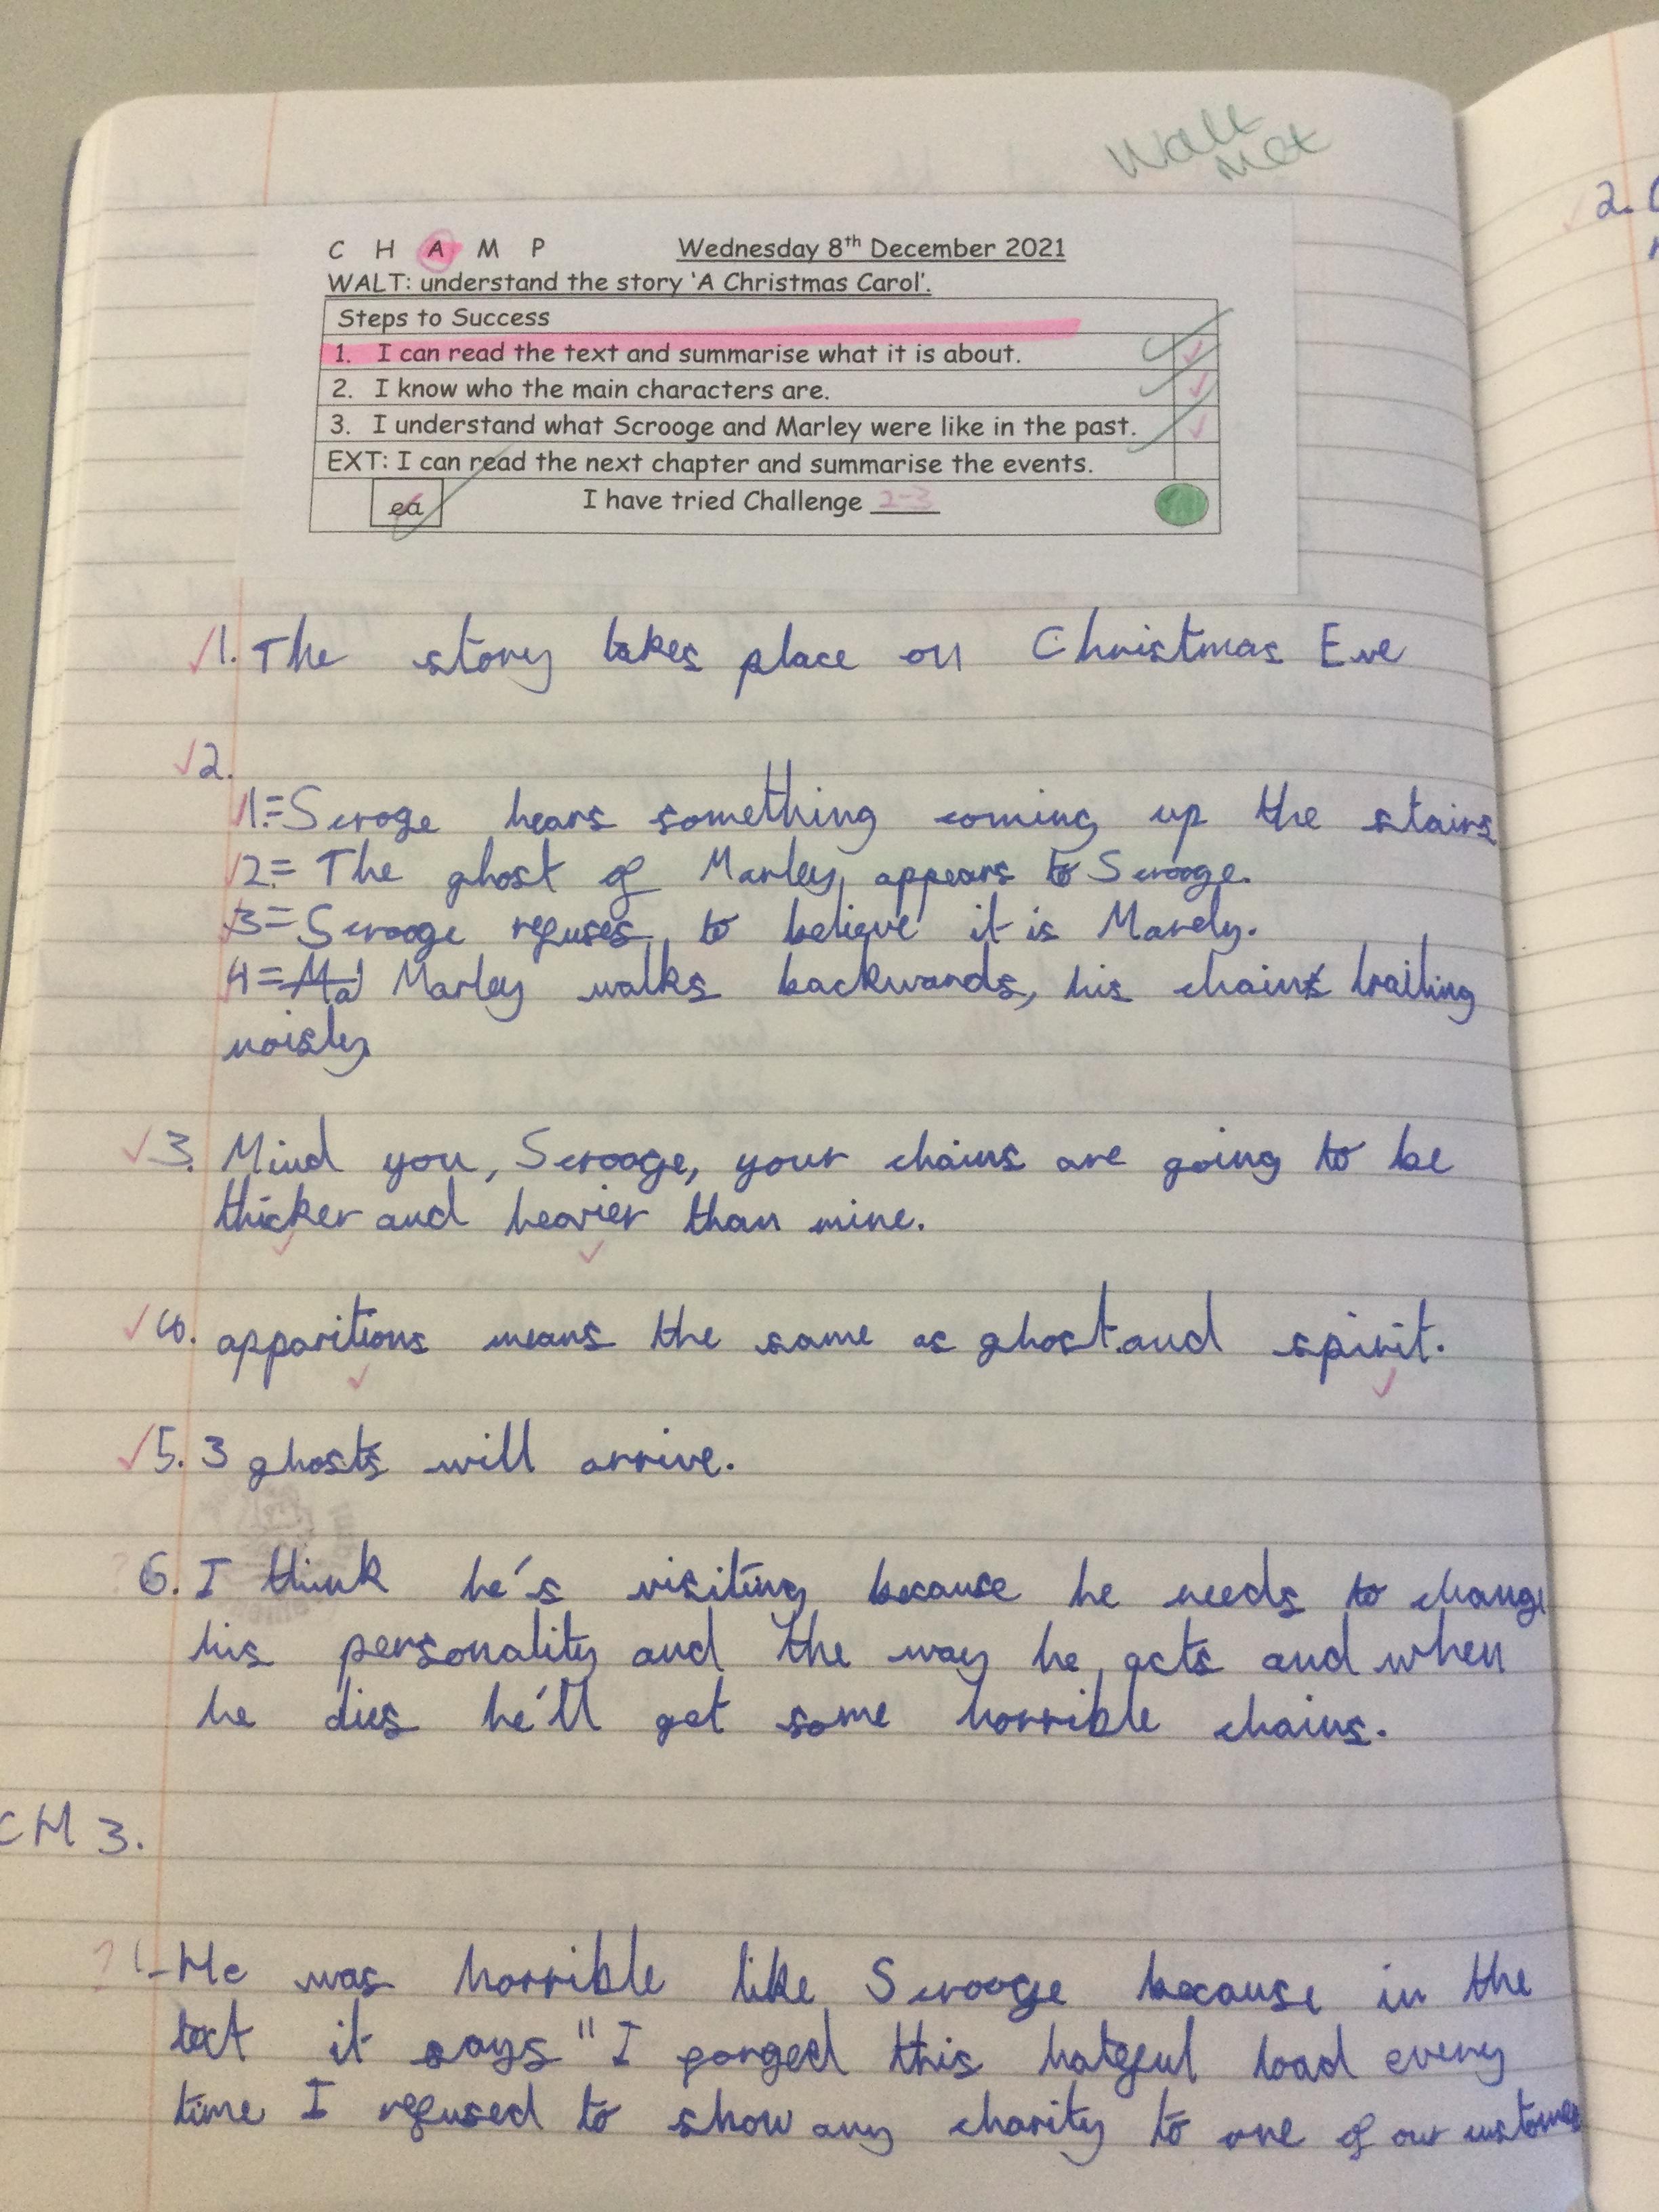 Walt
Met
C H A M P Wednesday 8th December 2021
WALT: understand the story 'A Christmas Carol'.
Steps to Success
1. I can read the text and summarise what it is about.
2. I know who the main characters are.
3. I understand what Scrooge and Marley were like in the past.
EXT: I can read the next chapter and summarise the events.
ea I have tried Challenge 2-3
1. The story takes place on Christmas Eve
2.
1=Scroge hears something coming up the stairs
2= The ghost of Marley appears to Scrooge.
3=Scrooge refuses to believe it is Marely.
4=Ma Marley walks backwards, his chains trailing
noisley
3. Mind you, Scrooge, your chains are going to be
thicker and heavier than mine.
4. apparitions means the same as ghost and spirit.
5. 3 ghosts will arrive.
6. I think he's visiting because he needs to change
his personality and the way he acts and when
he dies he'll get some horrible chains.
CH 3.
1-He was horrible like Scrooge because in the
text it says "I forged this hateful load every
time I refused to show any charity to one of our customers
2.